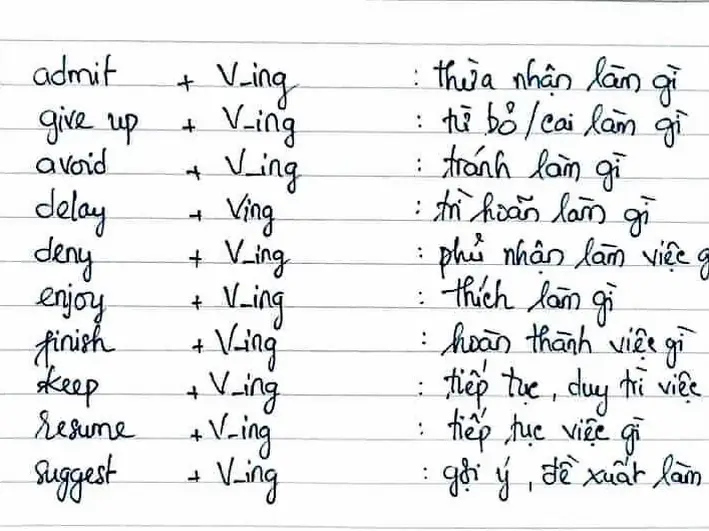 admit + V_ing : thừa nhận làm gì
give up + V_ing : từ bỏ / cai làm gì
avoid + V_ing : tránh làm gì
delay + Ving : trì hoãn làm gì
deny + V_ing : phủ nhận làm việc g
enjoy + V_ing : thích làm gì
finish + V_ing : hoàn thành việc gì
keep + V_ing : tiếp tục, duy trì việc
resume + V_ing : tiếp tục việc gì
suggest + V_ing : gợi ý, đề xuất làm